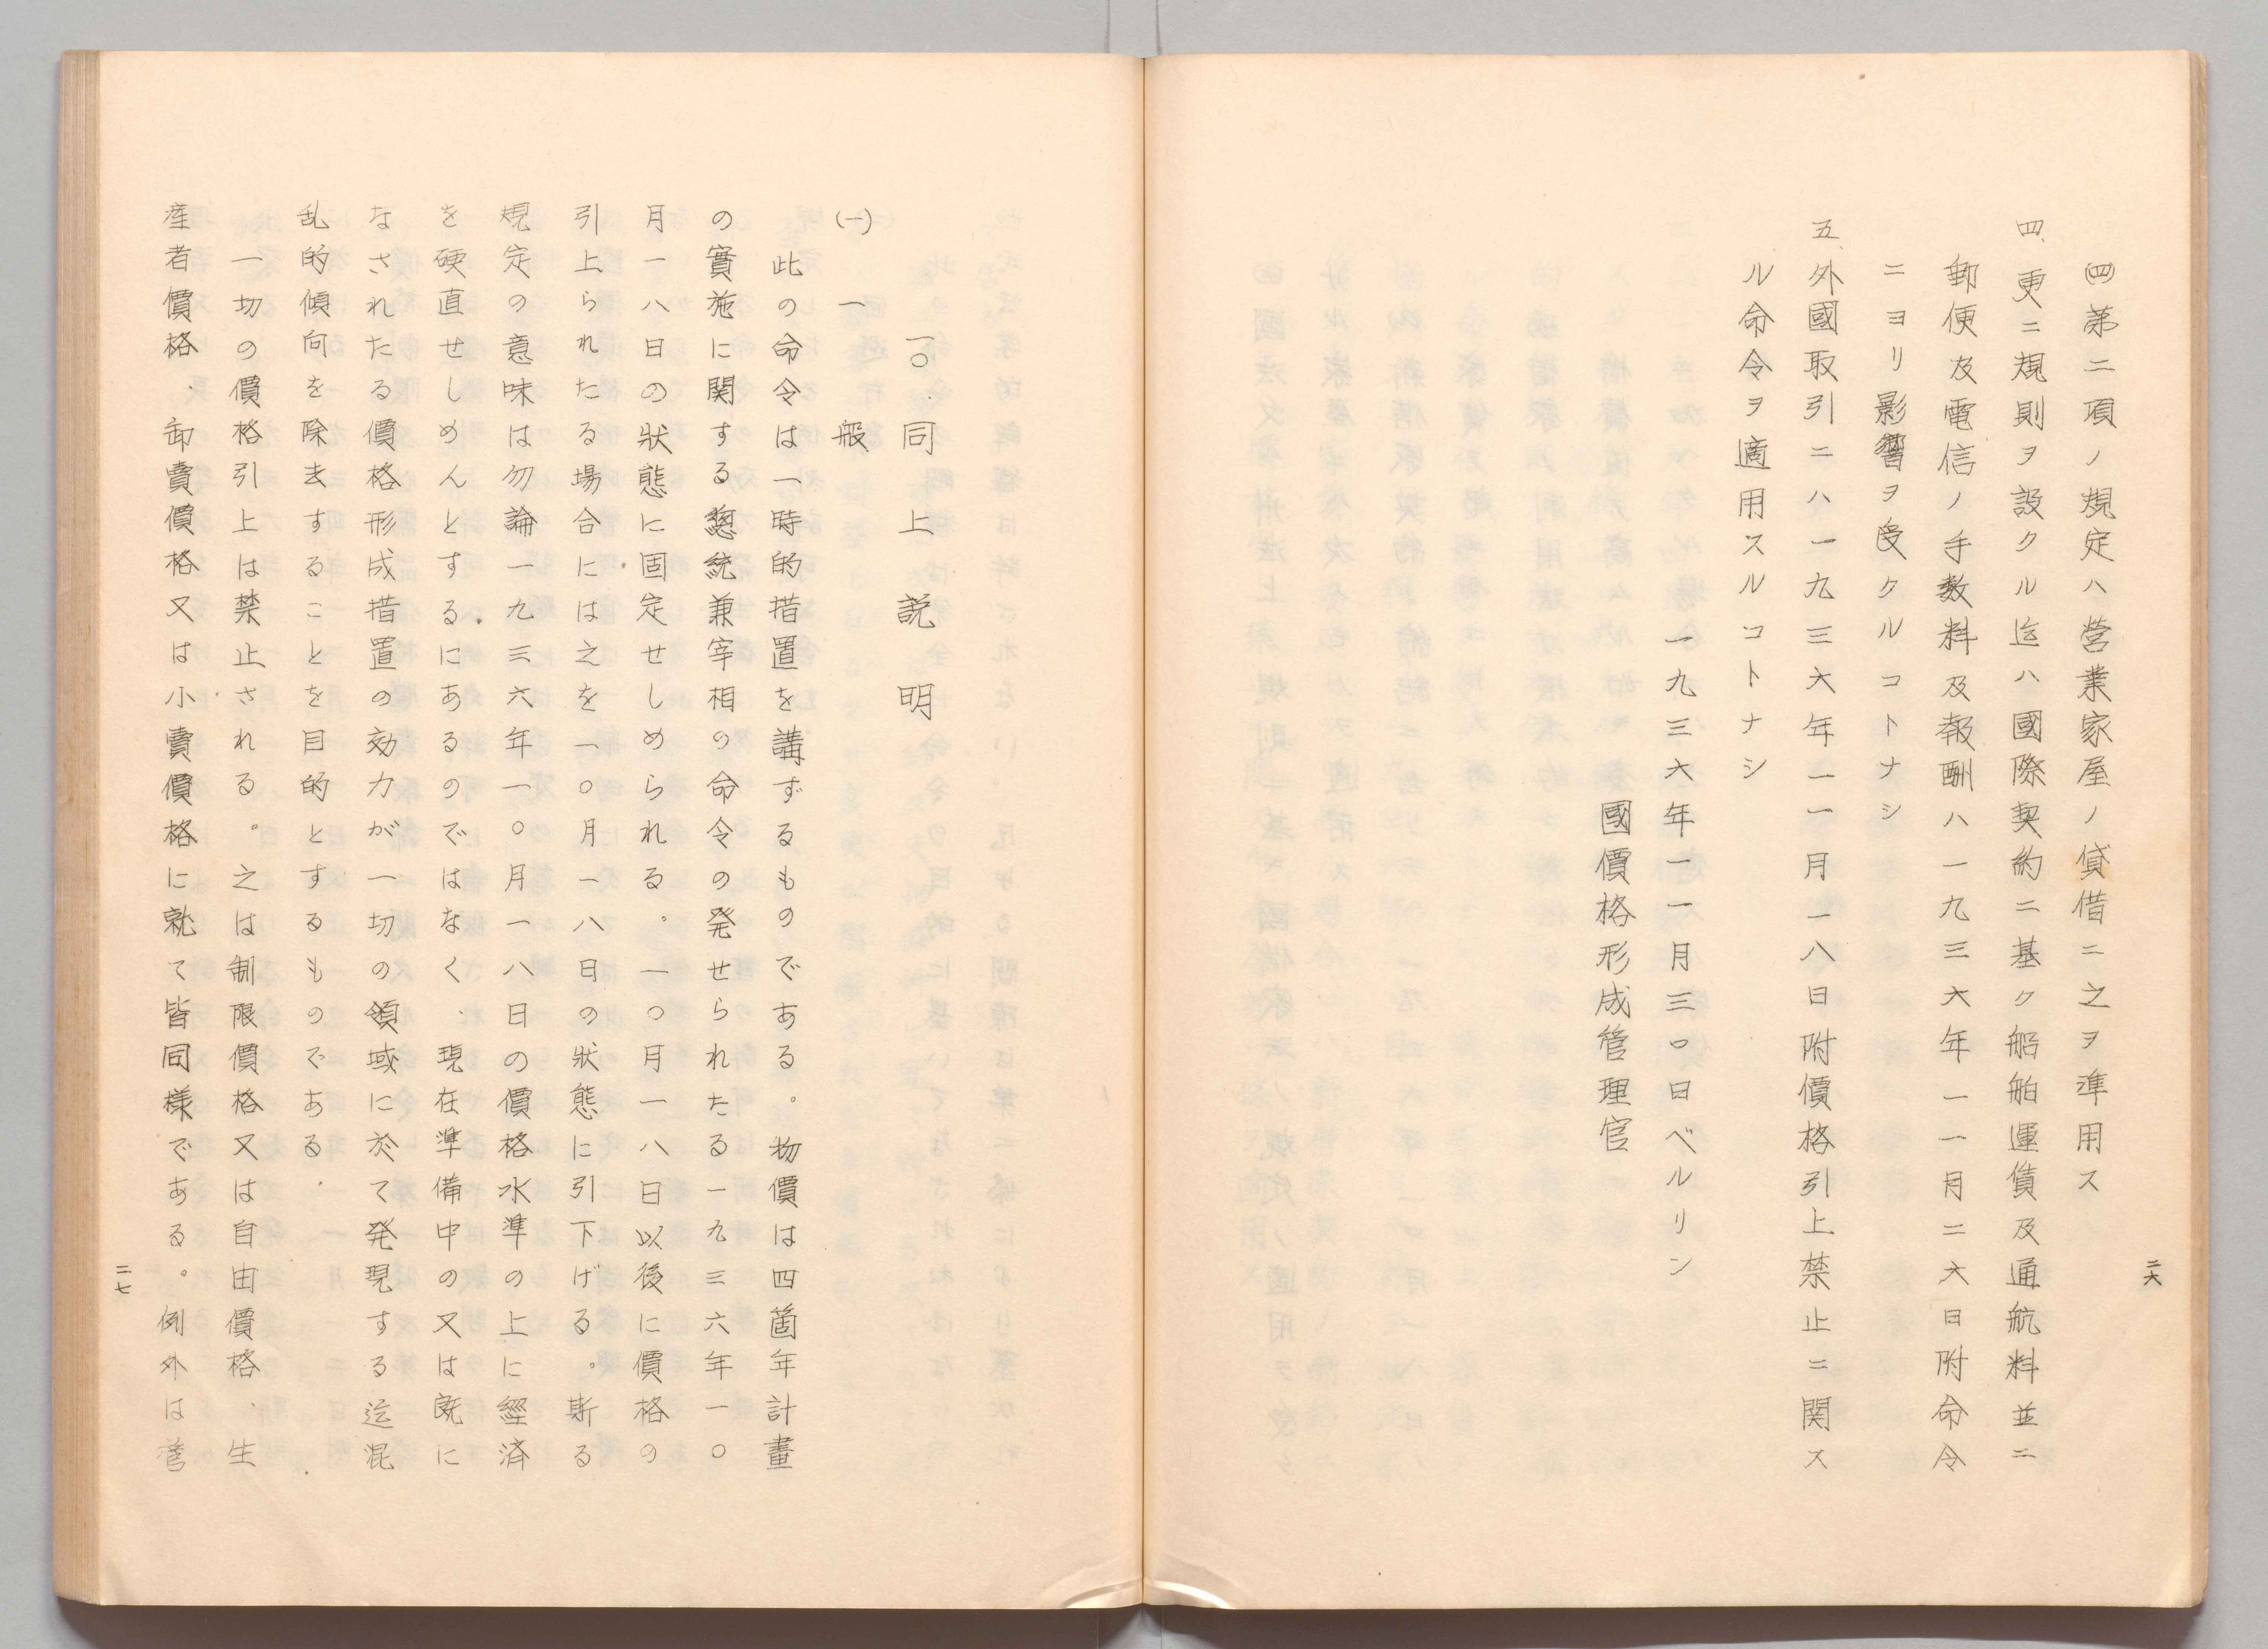 ㈣第二項ノ規定ハ営業家屋ノ貸借ニ之ヲ準用ス
四、更ニ規則ヲ設クル迄ハ國際契約ニ基ク船舶運賃及通航料並ニ
郵便及電信ノ手数料及報酬ハ一九三六年一一月二六日附命令
ニヨリ影響ヲ受クルコトナシ
五、外國取引ニハ一九三六年一一月一八日附價格引上禁止ニ関ス
ル命令ヲ適用スルコトナシ
一九三六年一一月三〇日ベルリン
國價格形成管理官
二六
一〇、同上説明
㈠一般
此の命令は一時的措置を講ずるものである。物價は四箇年計畫
の實施に関する惣統兼宰相の命令の発せられたる一九三六年一〇
月一八日の狀態に固定せしめられる。一〇月一八日以後に價格の
引上られたる場合には之を一〇月一八日の狀態に引下げる。斯る
規定の意味は勿論一九三六年一〇月一八日の價格水準の上に經済
を硬直せしめんとするにあるのではなく、現在準備中の又は既に
なされたる價格形成措置の効力が一切の領域に於て発現する迄混
乱的傾向を除去することを目的とするものである.
一切の價格引上は禁止される。之は制限價格又は自由價格、生
産者價格、卸賣價格又は小賣價格に就て皆同様である。例外は営
二七